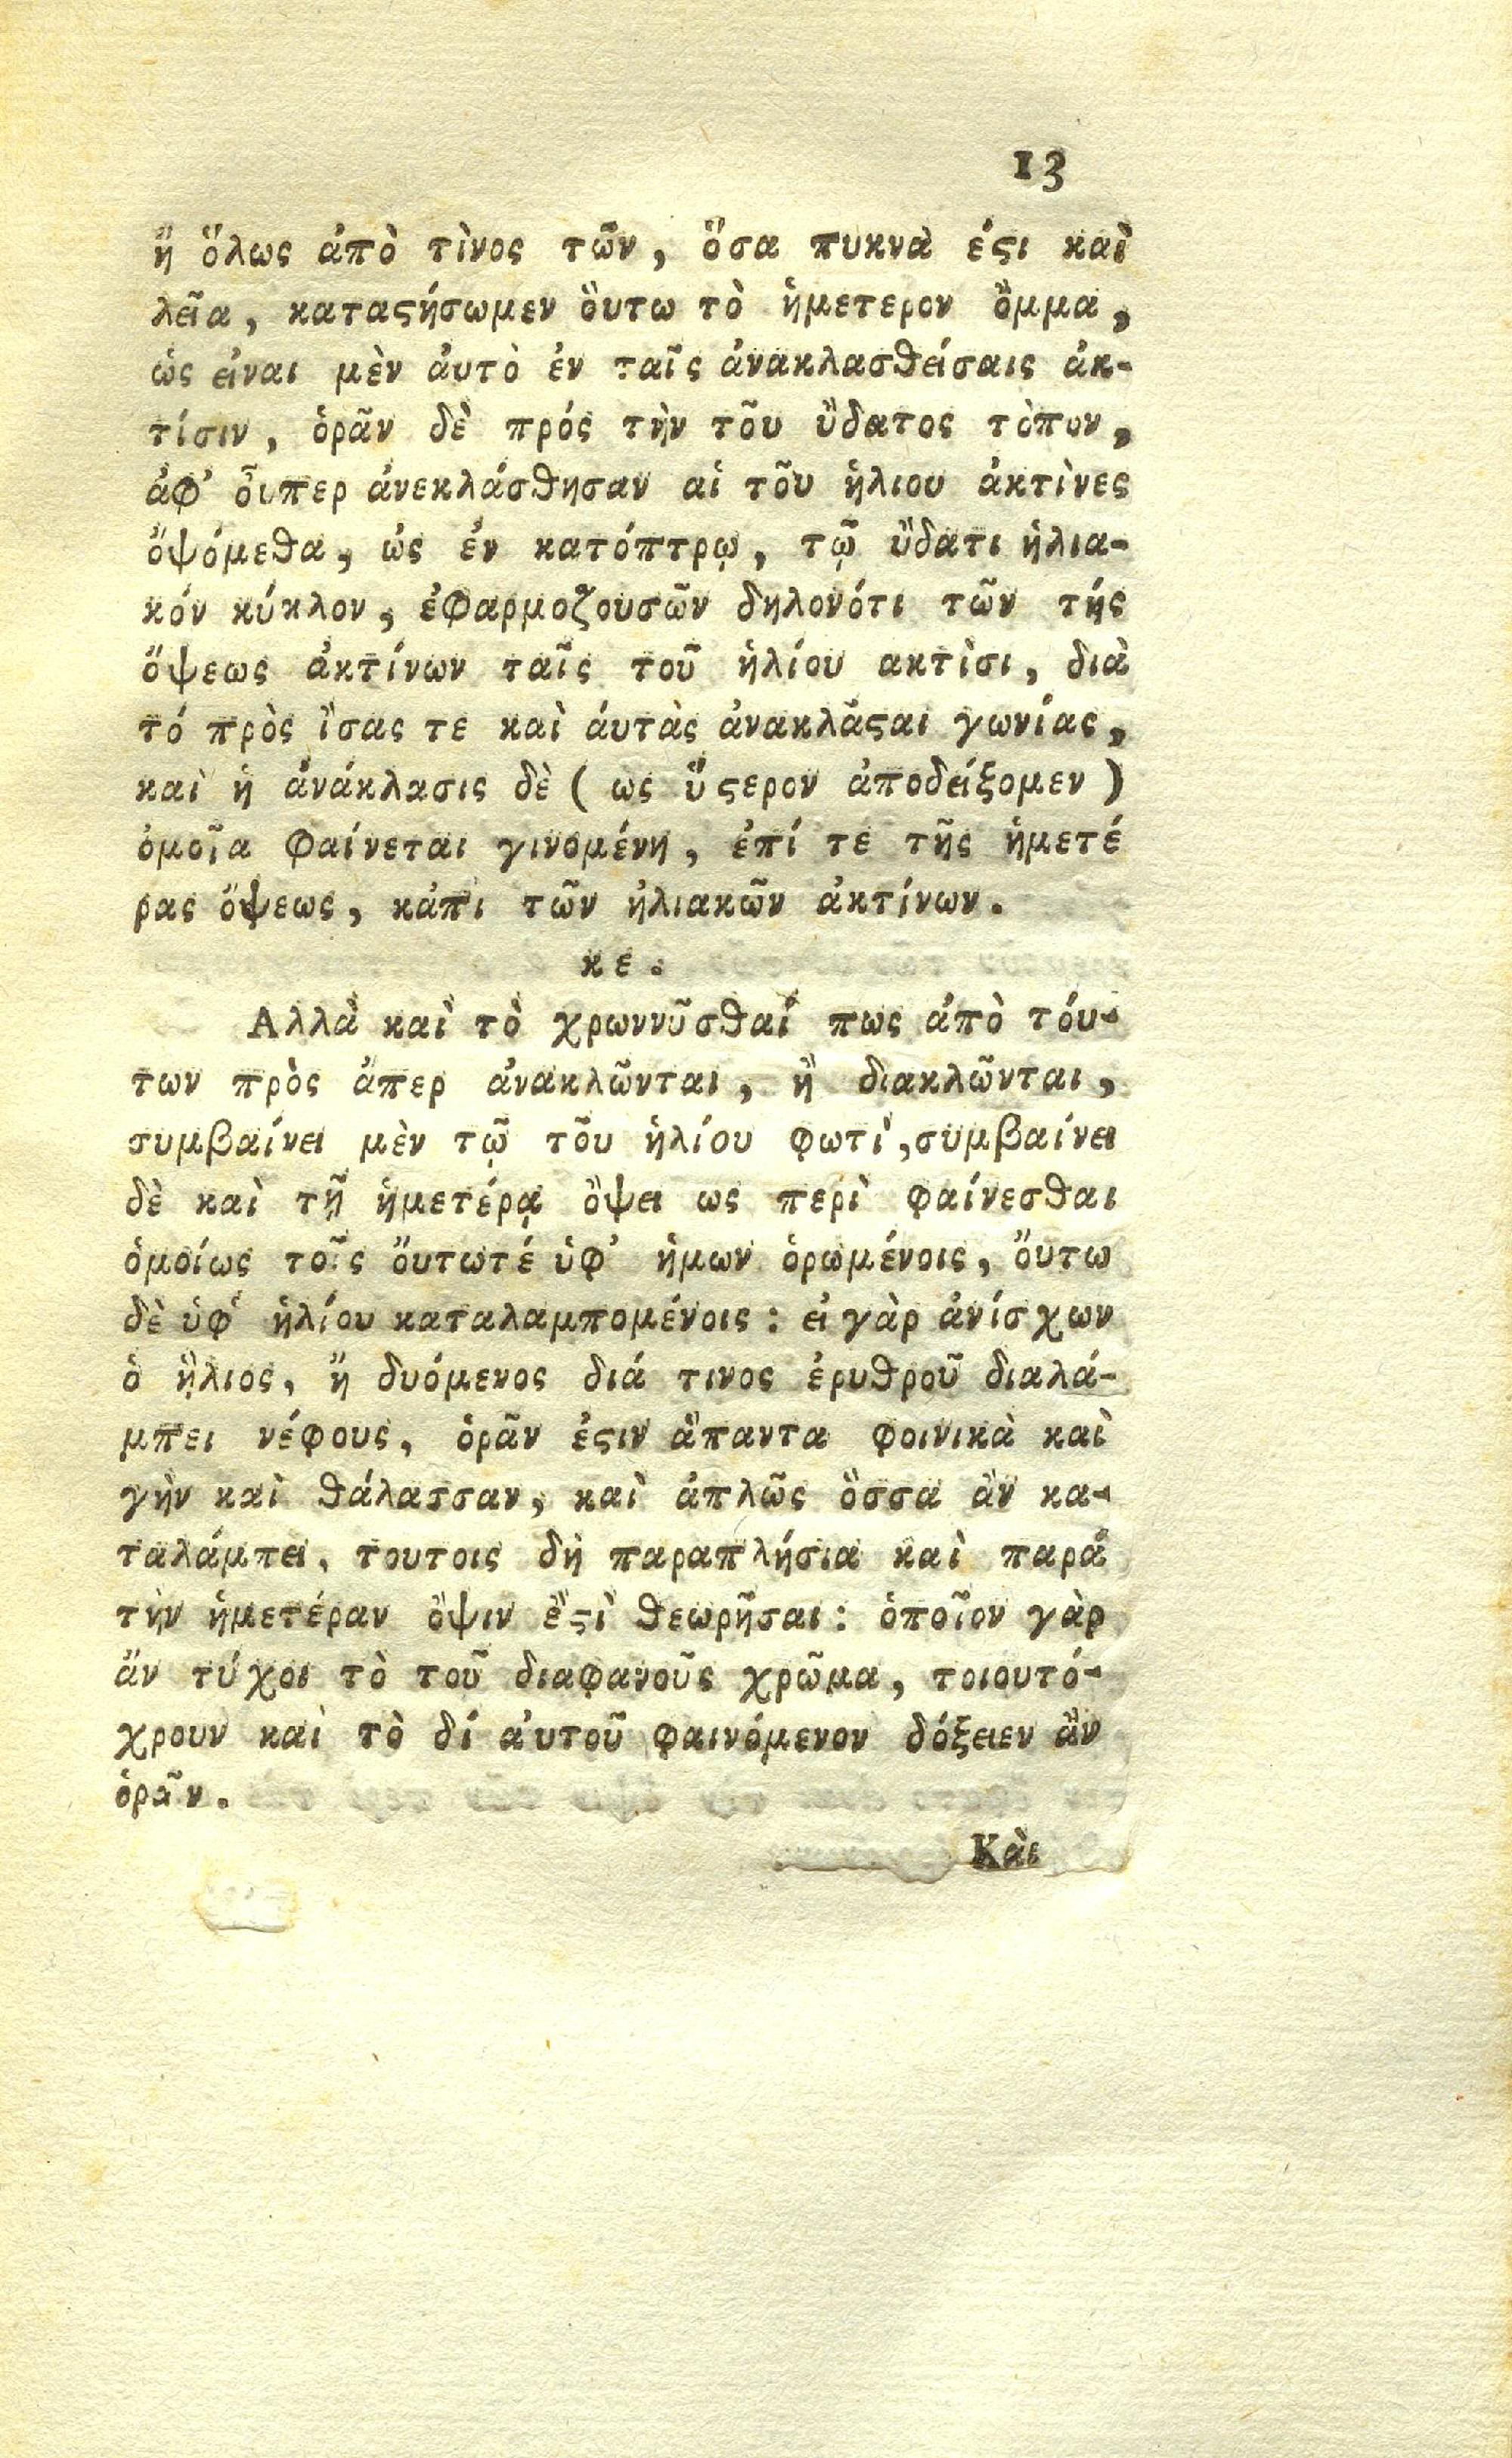 13
ἢ ὅλως ἀπὸ τὶνος τῶν, ὅσα πυκνὰ ἐϛι καὶ
λεῖα, καταϛήσωμεν ὅυτω τὸ ἡμετερον ὄμμα,
ὡς ἐιναι μὲν ἀυτὸ ἐν ταῖς ἀνακλασθείσαις ἀκ-
τίσιν, ὁρᾶν δὲ πρός τὴν τõυ ὕδατος τὸπον,
ἀφ' ὃιπερ ἀνεκλάσθησαν αἱ τõυ ἡλιου ἀκτὶνες
ὄψόμεθα, ὡς ἐν κατόπτρῳ, τῷ ὕδατι ἡλια-
κόν κύκλον, ἐφαρμοζουσῶν δηλονότι τῶν τής
ὄψεως ἀκτίνων ταῖς τοῦ ἡλίου ακτὶσι, διὰ
τό πρὸς ἴσας τε καὶ ἀυτὰς ἀνακλᾶϛαι γωνίας,
καὶ ἡ ἀνάκλασις δὲ ( ως ὕϛερον ἀποδείξομεν )
ὁμοῖα φαίνεται γινομένη, ἐπί τε τῆς ἡμετέ
ρας ὄψεως, κἀπι τῶν ἡλιακῶν ἀκτίνων.
κε.
Αλλὰ καὶ τὸ χρωννῦσθαί πως ἀπὸ τόυ-
των πρὸς ἅπερ ἀνακλῶνται, ἢ διακλῶνται,
συμβαίνει μὲν τῷ τõυ ἡλίου φωτὶ, συμβαίνει
δὲ καὶ τῇ ἡμετέρᾳ ὄψει ως περὶ φαίνεσθαι
ὁμοίως τοῖς ὅυτωτέ ὑφ' ἡμων ὁρωμένοις, ὅυτω
δὲ ὑφ' ἡλίου καταλαμπομένοις: ἐι γὰρ ἀνίσχων
ὁ ἥλιος, ἢ δυόμενος διά τινος ἐρυθροῦ διαλά-
μπει νέφους, ὁρᾶν ἐϛιν ἅπαντα φοινικὰ καὶ
γὴν καὶ θάλασσαν, καὶ ἁπλῶς ὅσσα ἂν κα-
ταλάμπει, τουτοις δὴ παραπλήσια καὶ παρὰ
τὴν ἡμετέραν ὄψιν ἔϛὶ θεωρῆσαι: ὁποῖον γὰρ
ἄν τύχοι τὸ τοῦ διαφανοῦς χρῶμα, τοιουτό-
χρουν καὶ τὸ δί ἀυτοῦ φαινόμενον δόξειεν ἂν
ὁρᾶν.
Κὰι